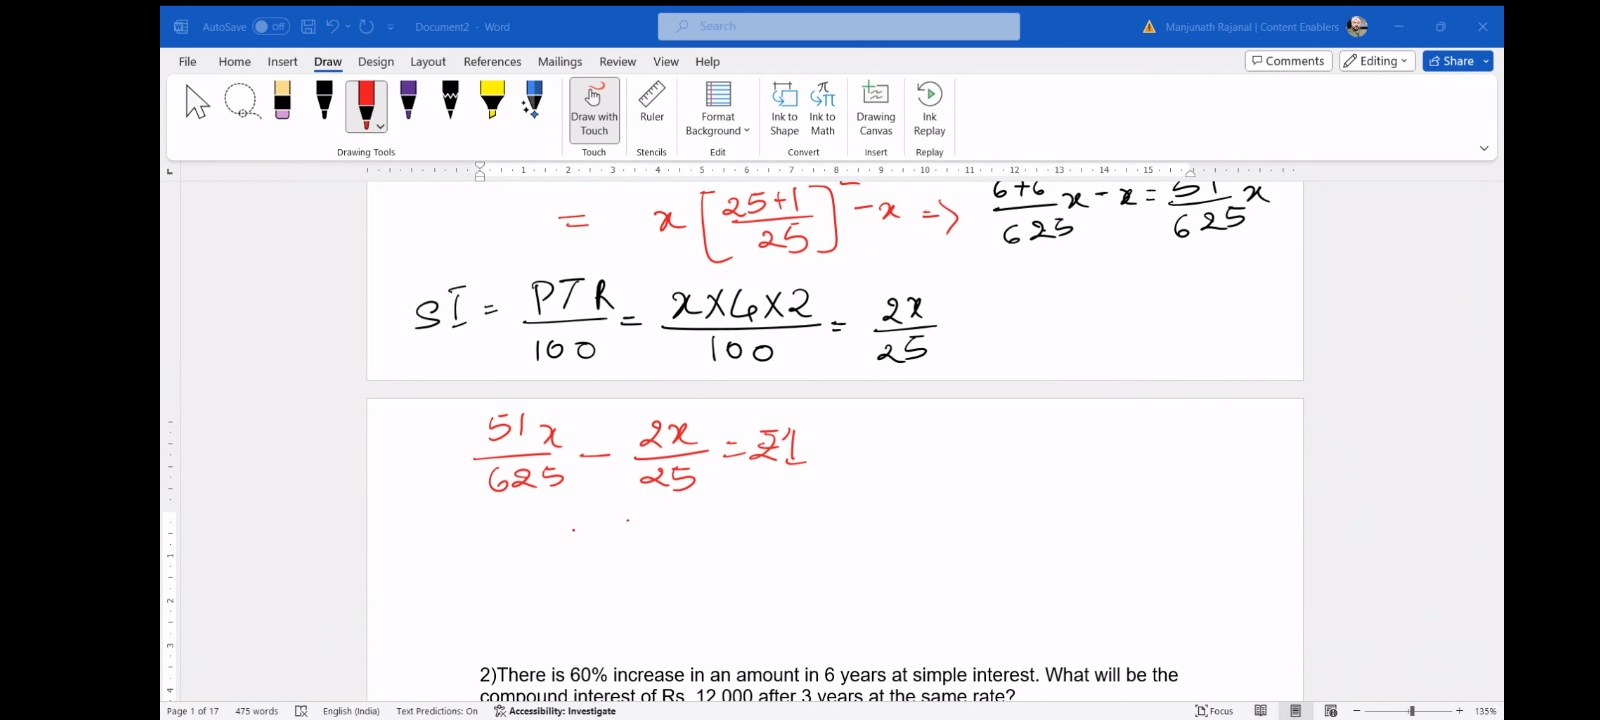 AutoSave Off Document2 - Word Search Manjunath Rajanal | Content Enablers
File Home Insert Draw Design Layout References Mailings Review View Help Comments Editing Share
Draw with Touch Ruler Format Background Ink to Shape Ink to Math Drawing Canvas Ink Replay
Drawing Tools Touch Stencils Edit Convert Insert Replay
1 2 3 4 5 6 7 8 9 10 11 12 13 14 15
= x [ 25+1 / 25 ] - x => 676 / 625 x - x = 51 / 625 x
SI = PTR / 100 = x × 4 × 2 / 100 = 2x / 25
51x / 625 - 2x / 25 = 1
2)There is 60% increase in an amount in 6 years at simple interest. What will be the
compound interest of Rs. 12,000 after 3 years at the same rate?
Page 1 of 17 475 words English (India) Text Predictions: On Accessibility: Investigate Focus 135%